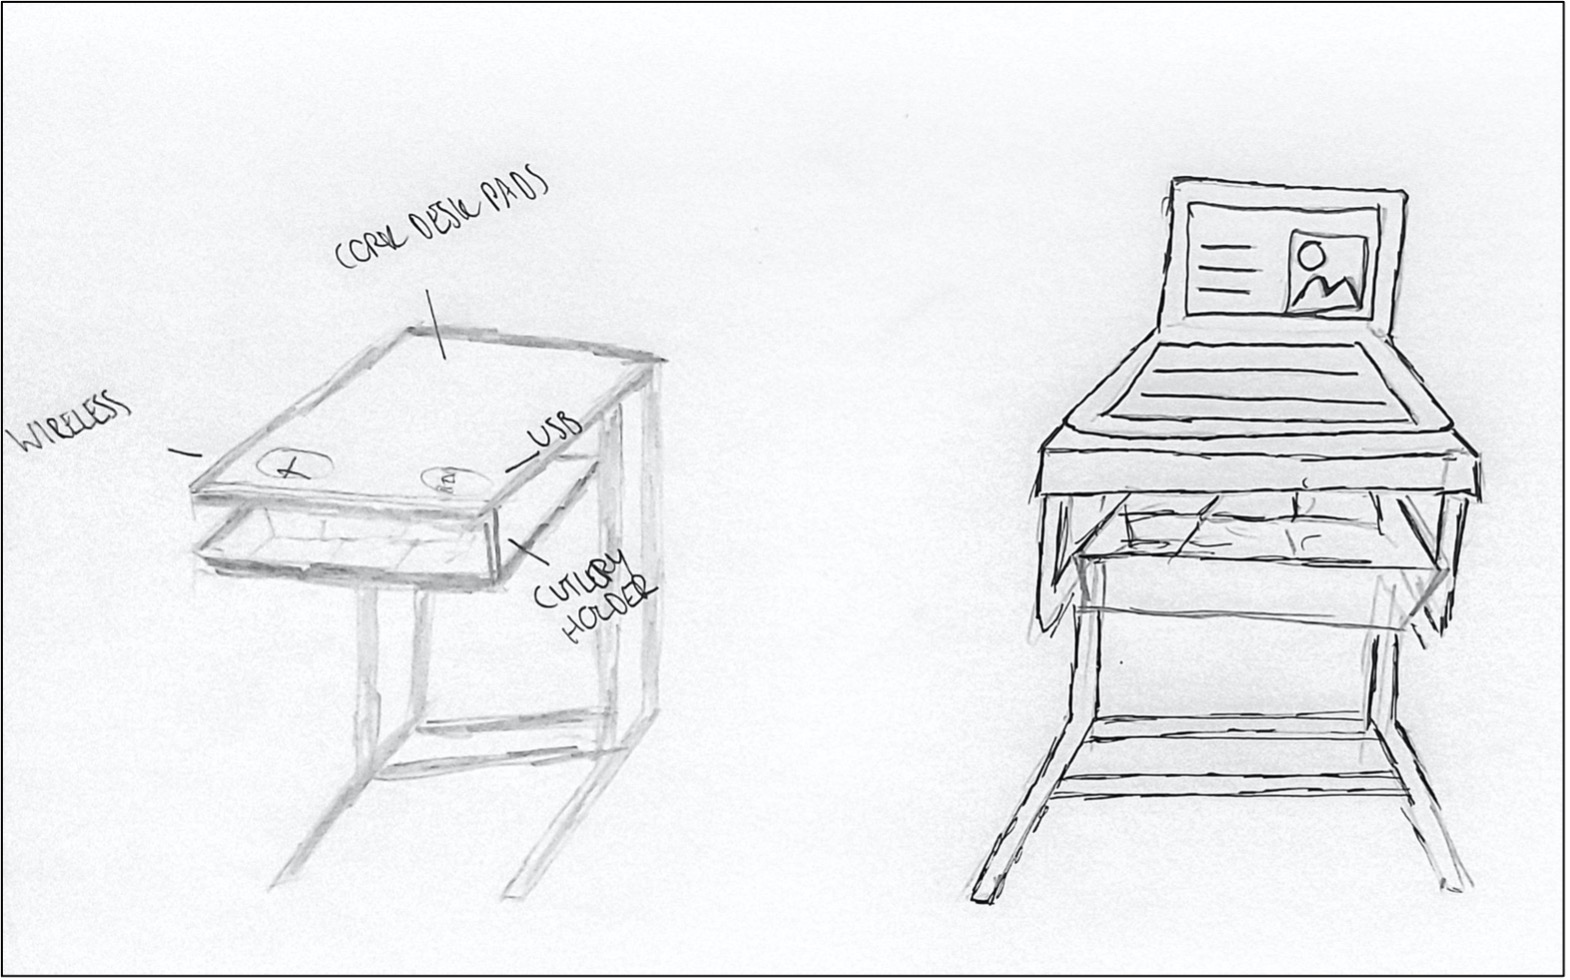 CORK DESK PADS
WIRELESS
USB
CUTLERY
HOLDER